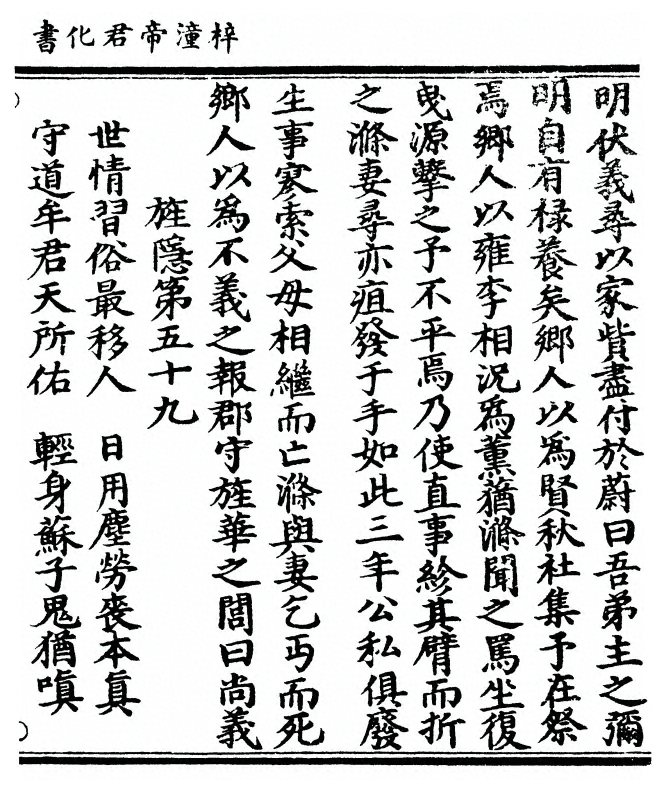 梓潼帝君化書
明伏義尋以家貲盡付於蔚曰吾弟主之彌
明自有祿養矣鄉人以爲賢秋社集予在祭
焉鄉人以雍李相況爲薰蕕滌聞之罵坐復
曳源擊之予不平焉乃使直事紾其臂而折
之滌妻尋亦疽發于手如此三年公私俱廢
生事寥索父母相繼而亡滌與妻乞丐而死
鄉人以爲不義之報郡守旌華之閭曰尚義
旌隱第五十九
世情習俗最移人 日用塵勞喪本眞
守道牟君天所佑 輕身蘇子鬼猶嗔